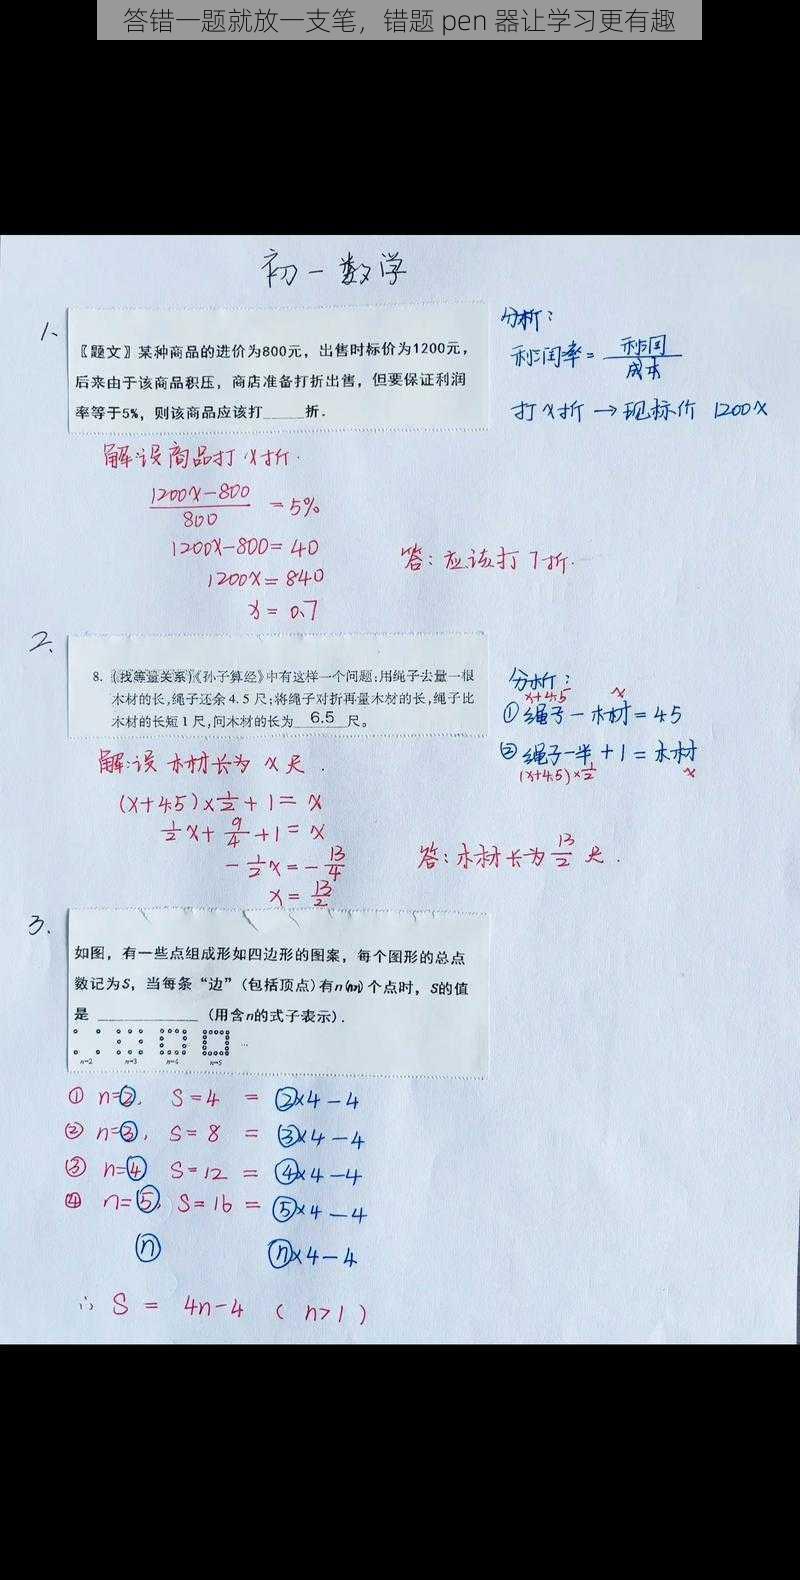 答错一题就放一支笔，错题 pen 器让学习更有趣
初一数学
1、
〖题文〗某种商品的进价为800元，出售时标价为1200元，
后来由于该商品积压，商店准备打折出售，但要保证利润
率等于5%，则该商品应该打____折．
分析：
利润率 = 利润/成本
打x折 → 现标价 1200x
解:设商品打x折．
(1200x-800)/800 = 5%
1200x-800=40
1200x=840
x=0.7
答：应该打7折．
2、
8. 〖找等量关系〗《孙子算经》中有这样一个问题:用绳子去量一根
木材的长,绳子还余 4.5 尺;将绳子对折再量木材的长,绳子比
木材的长短 1 尺,问木材的长为 6.5 尺。
分析：
x+4.5 x
①绳子-木材=4.5
②绳子一半+1=木材
(x+4.5)×1/2 x
解:设木材长为 x 尺．
(x+4.5)×1/2+1=x
1/2x+9/4+1=x
-1/2x=-13/4
x=13/2
答:木材长为13/2尺．
3、
如图，有一些点组成形如四边形的图案，每个图形的总点
数记为S，当每条“边”(包括顶点)有n个点时，S的值
是 ____________ (用含n的式子表示)．
n=2 n=3 n=4 n=5 …
① n=2, S=4 = 2×4-4
② n=3, S=8 = 3×4-4
③ n=4 S=12 = 4×4-4
④ n=5, S=16 = 5×4-4
n n×4-4
∴ S = 4n-4 ( n>1 )